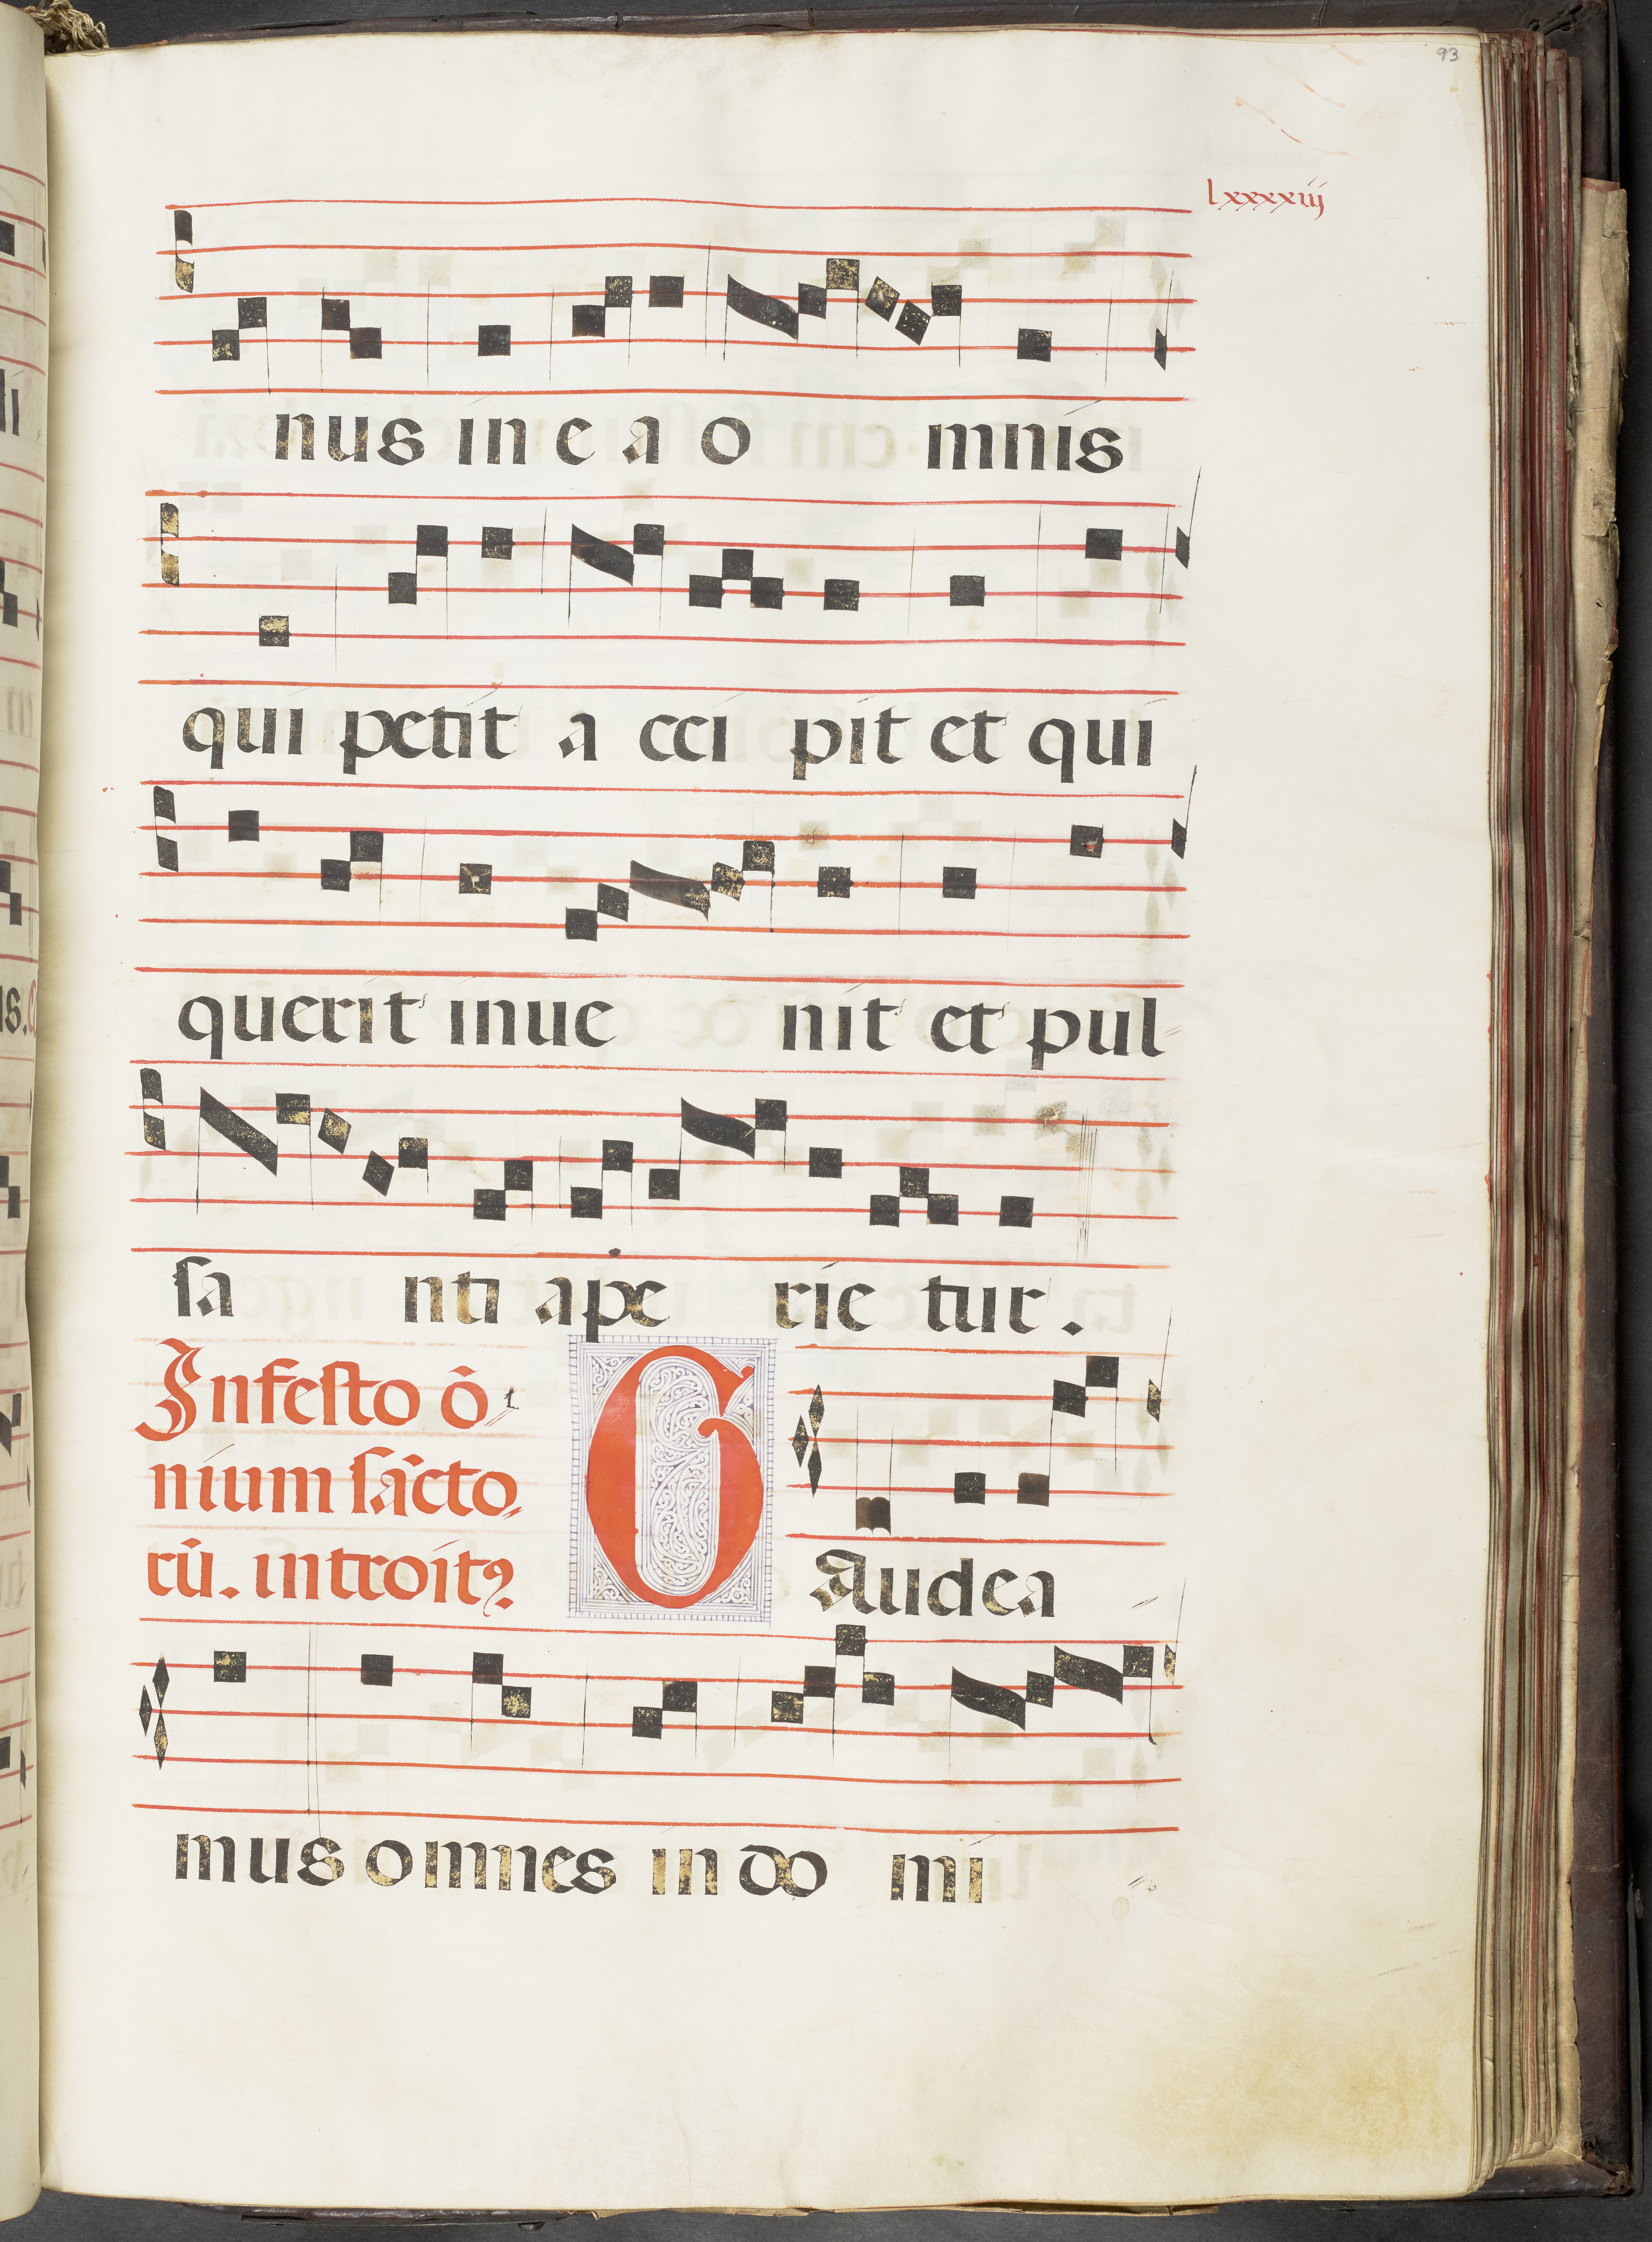 93
lxxxxiij
nus in e a o mnis
qui petit a cci pit et qui
querit inue nit et pul
sa nti ape rie tur.
In festo õ
nium sãcto
rũ. introitꝯ
GAudea
mus omnes in do mi